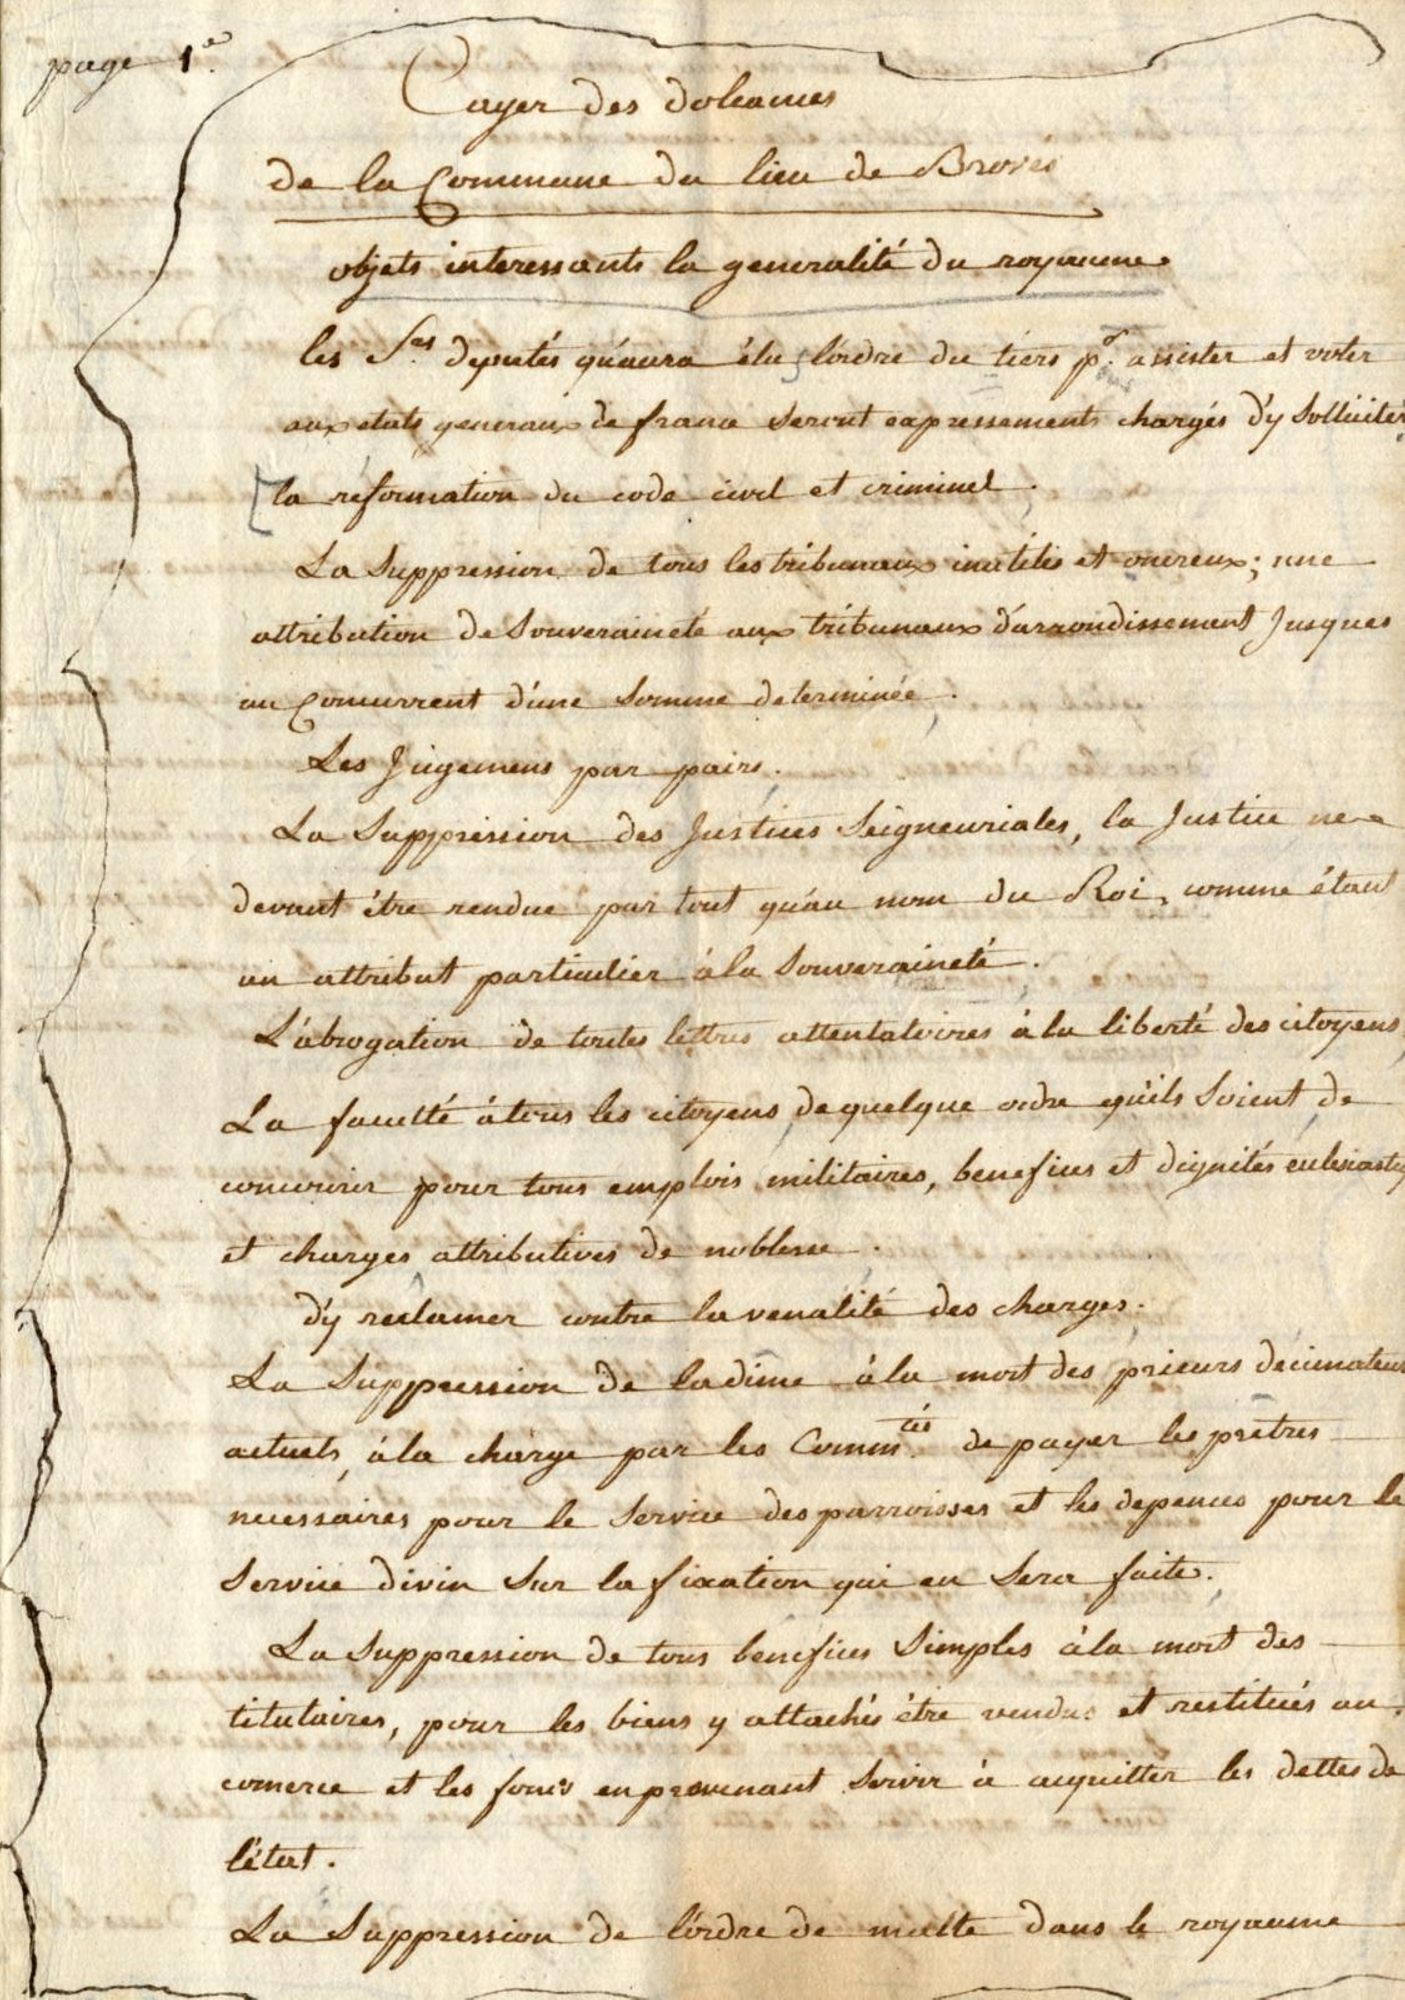 page 1e.
Cayer des doleances
de la Commune du lieu de Brovés
objets interessants la generalité du royaume.
les Srs. deputés qu'aura élu l'ordre du tiers pr. assister et voter
aux etats generaux de france seront expressement chargés d'y solliciter
la réformation du code civil et criminel.
La suppression de tous les tribunaux inutiles et onereux; une
attribution de souveraineté aux tribunaux d'arrondissement jusques
au concurrent d'une somme determinée.
Les jugemens par pairs.
La suppression des justices seigneuriales, la justice ne
devant être rendue par tout qu'au nom du Roi, comme étant
un attribut particulier à la souveraineté.
L'abrogation de toutes lettres attentatoires à la liberté des citoyens,
La faculté à tous les citoyens de quelque ordre qu'ils soient de
concourir pour tous emplois militaires, benefices et dignités eclesiastiq
et charges attributives de noblesse.
d'y reclamer contre la venalité des charges.
La suppression de la dime à la mort des prieurs decimateurs
actuels, à la charge par les Commtés. de payer les prêtres
necessaires pour le service des parroisses et les depences pour le
service divin sur la fixation qui en sera faite.
La suppression de tous benefices simples à la mort des
titulaires, pour les biens y attachés être vendus et restitués au
comerce et les fonds en provenant servir à acquitter les dettes de
l'état.
La suppression de l'ordre de malte dans le royaume